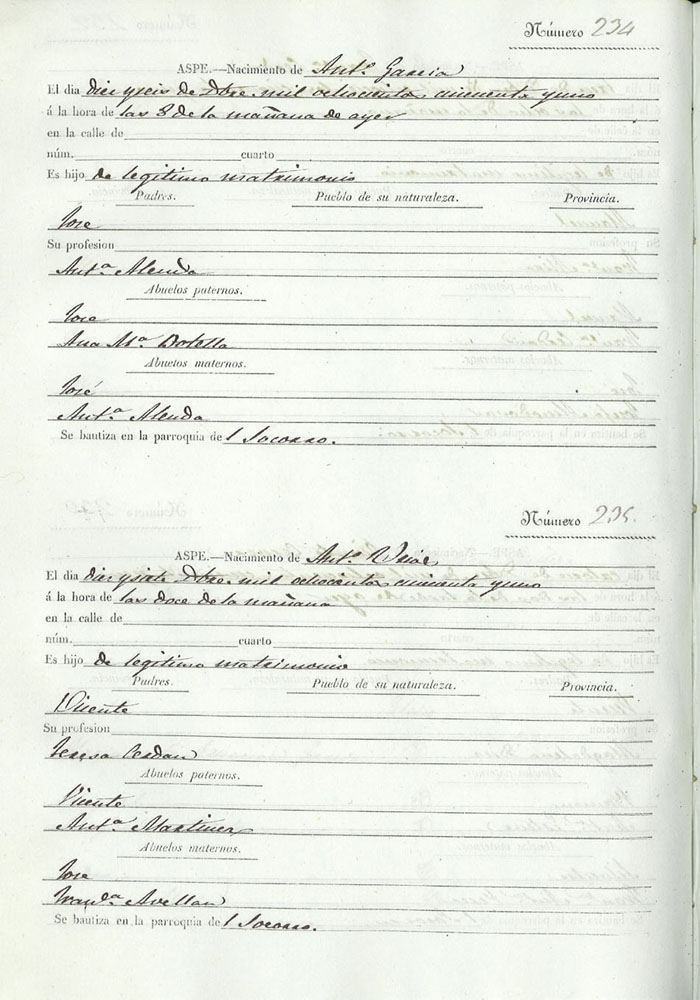 Número 234
ASPE.—Nacimiento de Ant.º Garcia
El dia diez y seis de Dbre. mil ochocientos cincuenta y uno
á la hora de las 8 de la mañana de ayer
en la calle de
núm. cuarto
Es hijo de legitimo matrimonio
Padres. Pueblo de su naturaleza. Provincia.
Jose
Su profesion
Ant.ª Alenda
Abuelos paternos.
Jose
Ana M.ª Botella
Abuelos maternos.
José
Ant.ª Alenda
Se bautiza en la parroquia del Socorro.
Número 235.
ASPE.—Nacimiento de Ant.º
El dia diez y siete Dbre. mil ochocientos cincuenta y uno
á la hora de las doce de la mañana
en la calle de
núm. cuarto
Es hijo de legitimo matrimonio
Padres. Pueblo de su naturaleza. Provincia.
Vicente
Su profesion
Teresa Cerdan
Abuelos paternos.
Vicente
Ant.ª Martinez
Abuelos maternos.
Jose
Avellan
Se bautiza en la parroquia del Socorro.